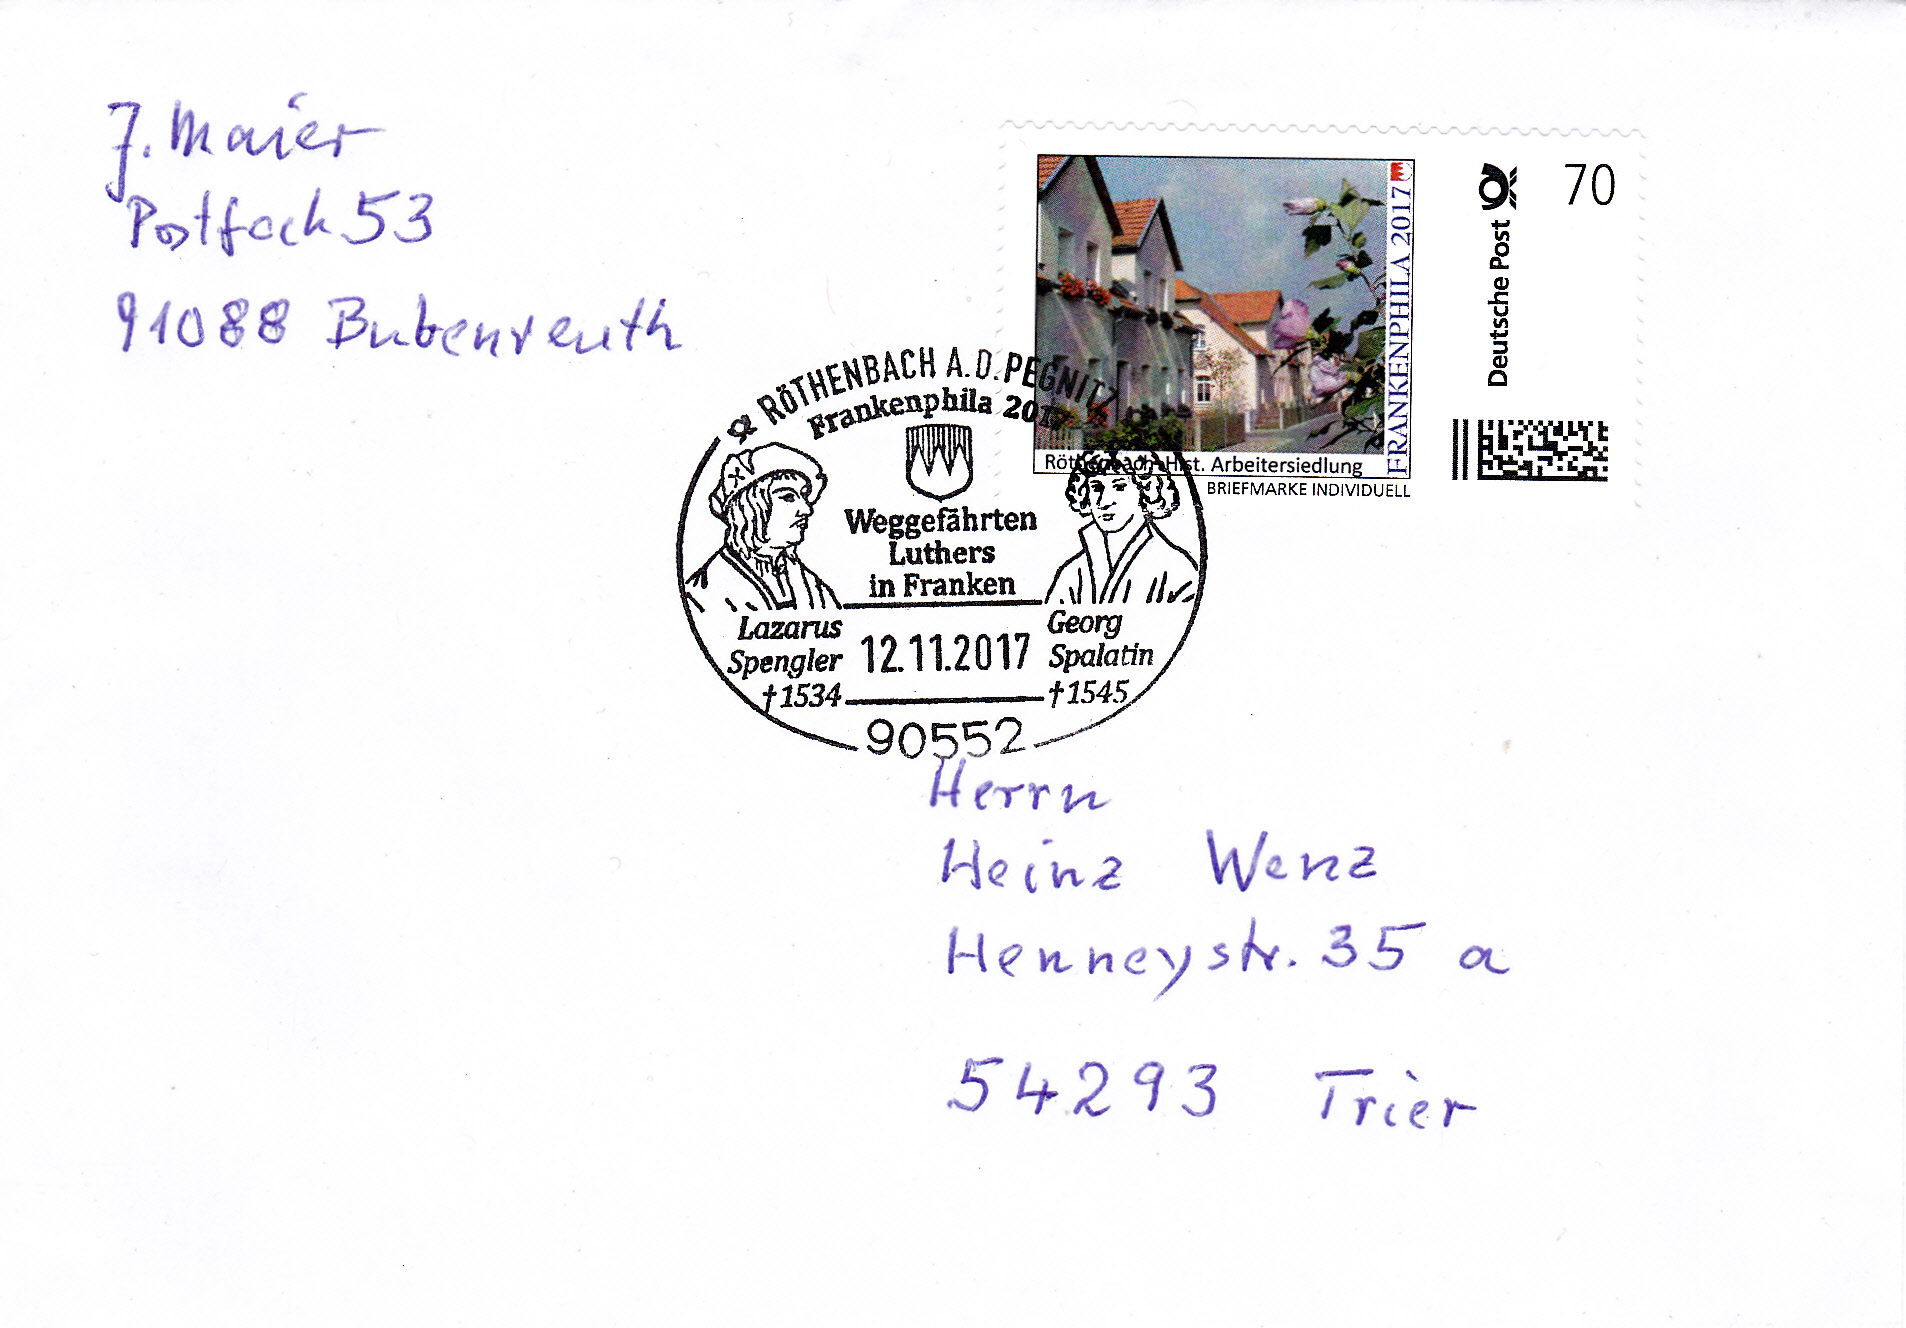 J. Maier
Postfach 53
91088 Bubenreuth
FRANKENPHILA 2017
Röthenbach-Hist. Arbeitersiedlung
BRIEFMARKE INDIVIDUELL
Deutsche Post
70
RÖTHENBACH A.D. PEGNITZ
Frankenphila 2017
Weggefährten
Luthers
in Franken
Lazarus
Spengler
†1534
12.11.2017
Georg
Spalatin
†1545
90552
Herrn
Heinz Wenz
Henneystr. 35 a
54293 Trier